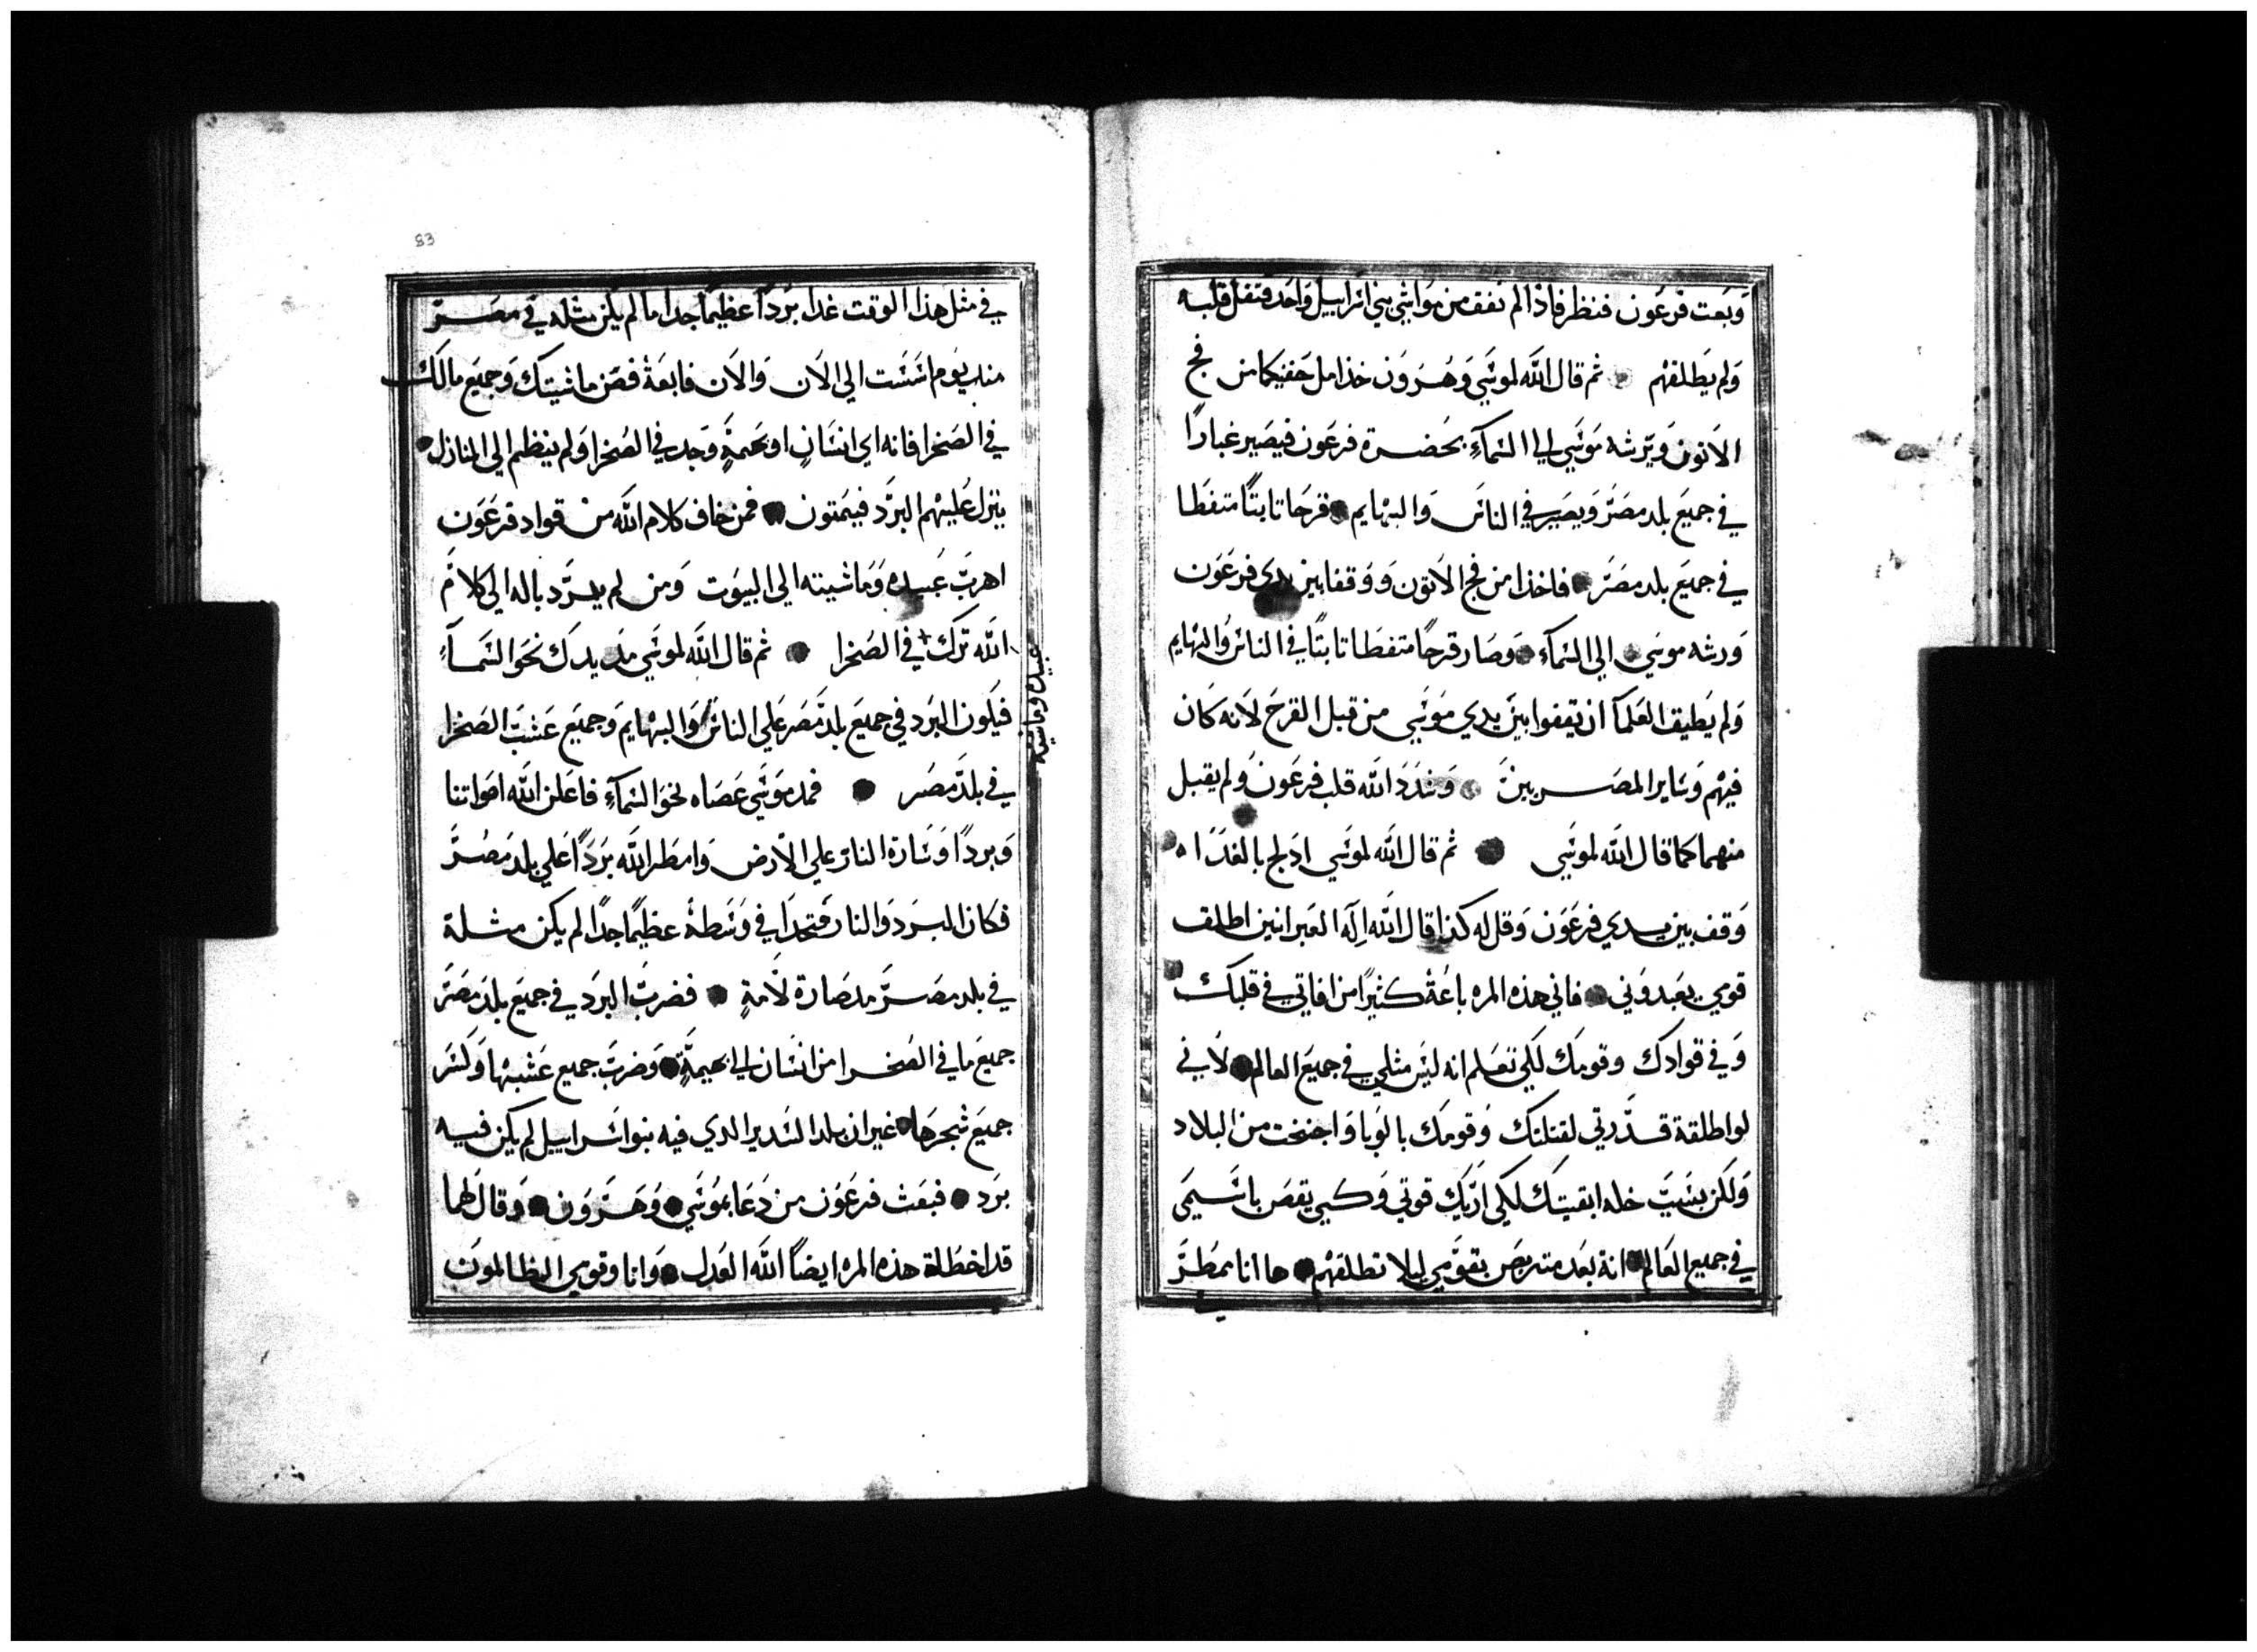 وَبَعَت فرعَون فنظر فاذا لم نفق من مَواشي بني اسَراييل وَاحَد فثقل قلبه
وَلم يَطلقهم ثم قال الله لموسَي وَهَرَوَن خذا مل حَفنيكما من فح
الاَتون وَيَرشه مَوسَي الي السَمآءِ بحُضرة فرعَون فيصَير غبارًا
في جميَع بلد مصَرَ وَيصَير في الناسَ وَالبهايم قرحَا تابتًا متفطا
في جميَع بلد مصَرَ فاخذا من فح الاَتون وَوَقفا بين يدي فرعَون
وَرشه موسَي الي السَمآء وَصَار قرحًا متفطا تابتًا في الناسَ وَالبهايم
وَلم يَطيق العَلمآ ان يَقفوا بينَ يدي مَوسَي من قبل القرحَ لاَنه كَان
فيهم وَسَاير المصَريينَ وَشَدَدَ الله قلب فرعَونَ وَلم يقبل
منهما كما قال الله لموسَي ثم قال الله لموسَي ادَلج بالغدَا
وَقف بين يدي فرعَوَن وَقل له كذا قال الله اِلَه العَبرانين اطلف
قومي يعَبدوَني فاني هذه المره باعَة كثيرًا من افاتي في قلبَك
وَفي قوادك وقومَك لكَي تعَلم انه ليَسَ مثلي في جميعَ العالم لاَني
لو اطلقة قدرتي لقتلتك وَقومَك بالوَبا وَاجتخت من البلاد
وَلَكن بسَبَبَ خله ابقيتَك لكَي ارَيَك قوتي وَكي يقصَ باسَمَي
في جميع العَالم انة بعَد متربصَ بقوَمَي ليلا تطلقهم ها انا ممَطرَ
83
في مثل هذا الوقت غدا برَدًا عظيمًا جدا ما لم يكَن مثله في مصَرَ
منذ يوم اسَسَت الي الاَن وَالاَن فابعَة فصَن ماشيتك وَجميَع مالَك
في الصَحرا فانه اي انسَان او بَهَيمةٍ وَجد في الصَحرا وَلم ينظم الي المنازل
ينزل عَليهم البرَد فيمَتون فمن خاف كلام الله من قواد فرعَوَن
اهربَ عَبيده وَمَاشيته الي البيوَت وَمن لم يرَد باله الي كلامَ
الله تَرَك + في الصَحرا ثم قال الله لموسَي مَد يدَك نحَوَ السَمآءِ
عَبيده وماشيته
فيَكون البرَد في جميعَ بلد مَصَر عَلي الناسَ وَالبهايمَ وَجميعَ عَشبَ الصَحَرا
في بلد مَصَر فمد مَوسَي عَصَاه نحوَ السَمآءِ فاعَلن الله اصَواتنا
وَبردًا وَسَارة النارَ علي الاَرض وَامطَر الله برَدًا عَلي بلد مَصَرَ
فكان البرَد وَالنار متحدَا في وَسَطة عظيمًا جدًا لم يكَن مثلة
في بلد مصَرَ مد صَارة لاَمةٍ فضربَ البرَد في جميعَ بلد مَصَرَ
جميعَ ما في الصَحرا من انسَان الي بَهيمةٍ وَضربَ جميع عَشبها وَكسَر
جميعَ شجرَها غير ان بلد السَدير الدي فيه بنوا اسَراييل لم يكَن فيه
برَد فبعَث فرعَوَن من دَعَا بموسَي وَهَرَوَن وَقال لَهما
قد اخطَلة هذه المره ايضًا الله العَدل وَانا وقومي الظالموَن